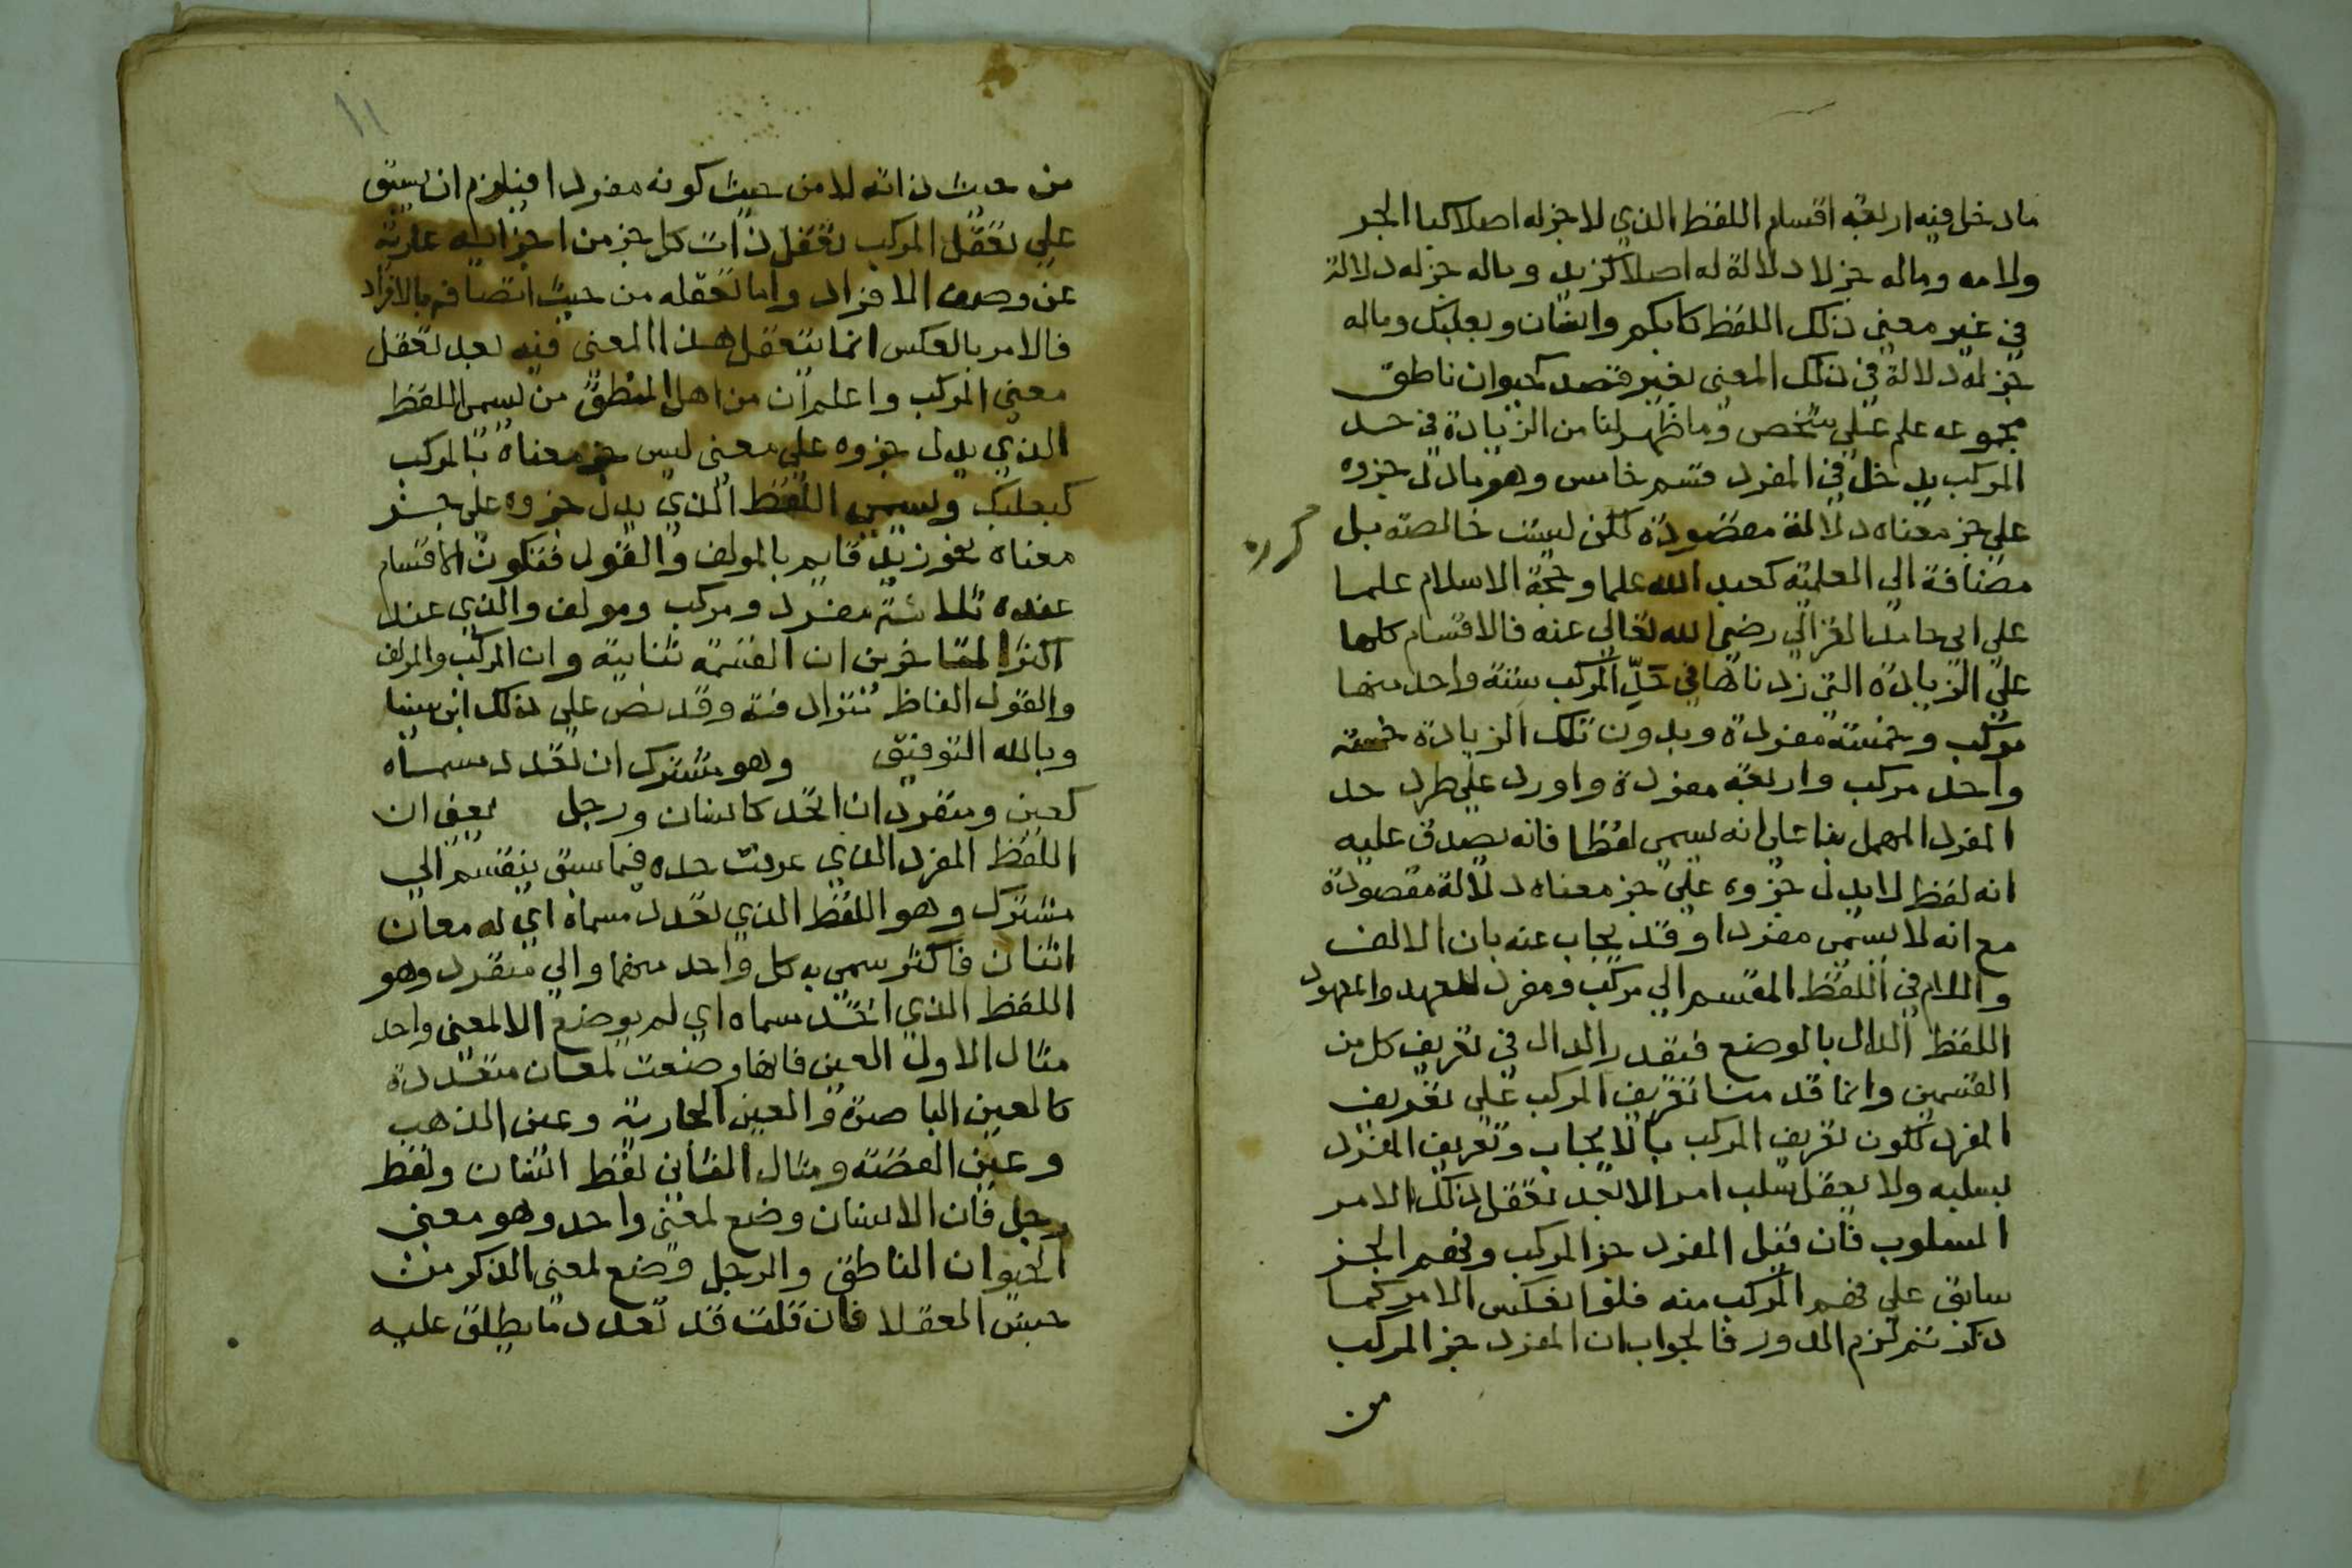 ما دخل فيه اربعة اقسام اللفظ الذي لا جزله اصلا كبا الجر
ولامه وماله جز لا دلالة له اصلا كزيد وماله جزله دلالة
في غير معني ذلك اللفظ كابكم وانسان وبعلبك وماله
جزله دلالة في ذلك المعني بغير قصد كحيوان ناطق
مجموعه علم علي شخص وما ظهر لنا من الزيادة في حد
المركب يدخل في المفرد قسم خامس وهو ما دل جزوه
علي جز معناه دلالة مقصودة لكن ليست خالصة بل
مضافة الي العلمية كعبد الله علما وحجة الاسلام علما
علي ابي حامد الغزالي رضي الله تعالي عنه فالاقسام كلها
علي الزيادة التي زدناها في حد المركب ستة واحد منها
مركب وخمسة مفردة وبدون تلك الزيادة خمسة
واحد مركب واربعة مفردة واورد علي طرد حد
المفرد المهمل بنا علي انه يسمي لفظا فانه يصدق عليه
انه لفظ لا يدل جزوه علي جز معناه دلالة مقصودة
مع انه لا يسمي مفردا وقد يجاب عنه بان الالف
واللام في اللفظ المقسم الي مركب ومفرد للعهد والمعهود
اللفظ الدال بالوضع فيقدر الدال في تعريف كل من
القسمين وانما قدمنا تعريف المركب علي تعريف
المفرد لكون تعريف المركب بالايجاب وتعريف المفرد
بسلبه ولا يعقل سلب امر الا بعد تعقل ذلك الامر
المسلوب فان قيل المفرد جز المركب وفهم الجز
سابق علي فهم المركب منه فلو انعكس الامر كما
ذكرتم لزم الدور فالجواب ان المفرد جز المركب
من
١١
من حيث ذاته لا من حيث كونه مفردا فيلزم ان يسبق
علي تعقل المركب تعقل ذات كل جز من اجزايه عارية
عن وصف الافراد واما تعقله من حيث اتصافه بالافراد
فالامر بالعكس انما يتعقل هذا المعني فيه بعد تعقل
معني المركب واعلم ان من اهل المنطق من يسمي اللفظ
الذي يدل جزوه علي معني ليس جز معناه بالمركب
كبعلبك ويسمي اللفظ الذي يدل جزوه علي جز
معناه نحو زيد قايم بالمولف والقول فتكون الاقسام
عنده ثلاثة مفرد ومركب ومولف والذي عند
اكثر المتاخرين ان القسمة ثنائية وان المركب والمولف
والقول الفاظ مترادفة وقد نص علي ذلك ابن سينا
وبالله التوفيق وهو مشترك ان تعدد مسماه
كعين ومنفرد ان اتحد كانسان ورجل يعني ان
اللفظ المفرد الذي عرفت حده فيما سبق ينقسم الي
مشترك وهو اللفظ الذي تعدد مسماه اي له معان
اثنان فاكثر سمي به كل واحد منها والي منفرد وهو
اللفظ الذي اتحد مسماه اي لم يوضع الا لمعني واحد
مثال الاول العين فانها وضعت لمعان متعددة
كالعين الباصرة والعين الجارية وعين الذهب
وعين الفضة ومثال الثاني لفظ انسان ولفظ
رجل فان الانسان وضع لمعني واحد وهو معني
الحيوان الناطق والرجل وضع لمعني الذكر من
جنس العقلا فان قلت قد تعدد ما يطلق عليه